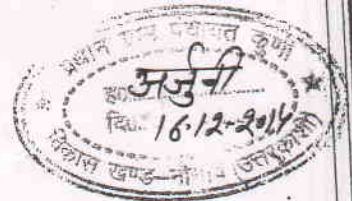 प्रधान ग्राम पंचायत कुर्णा
अर्जुनी
ह0
दि0.. 16.12-2014
विकास खण्ड-नौगांव (उत्तरकाशी)